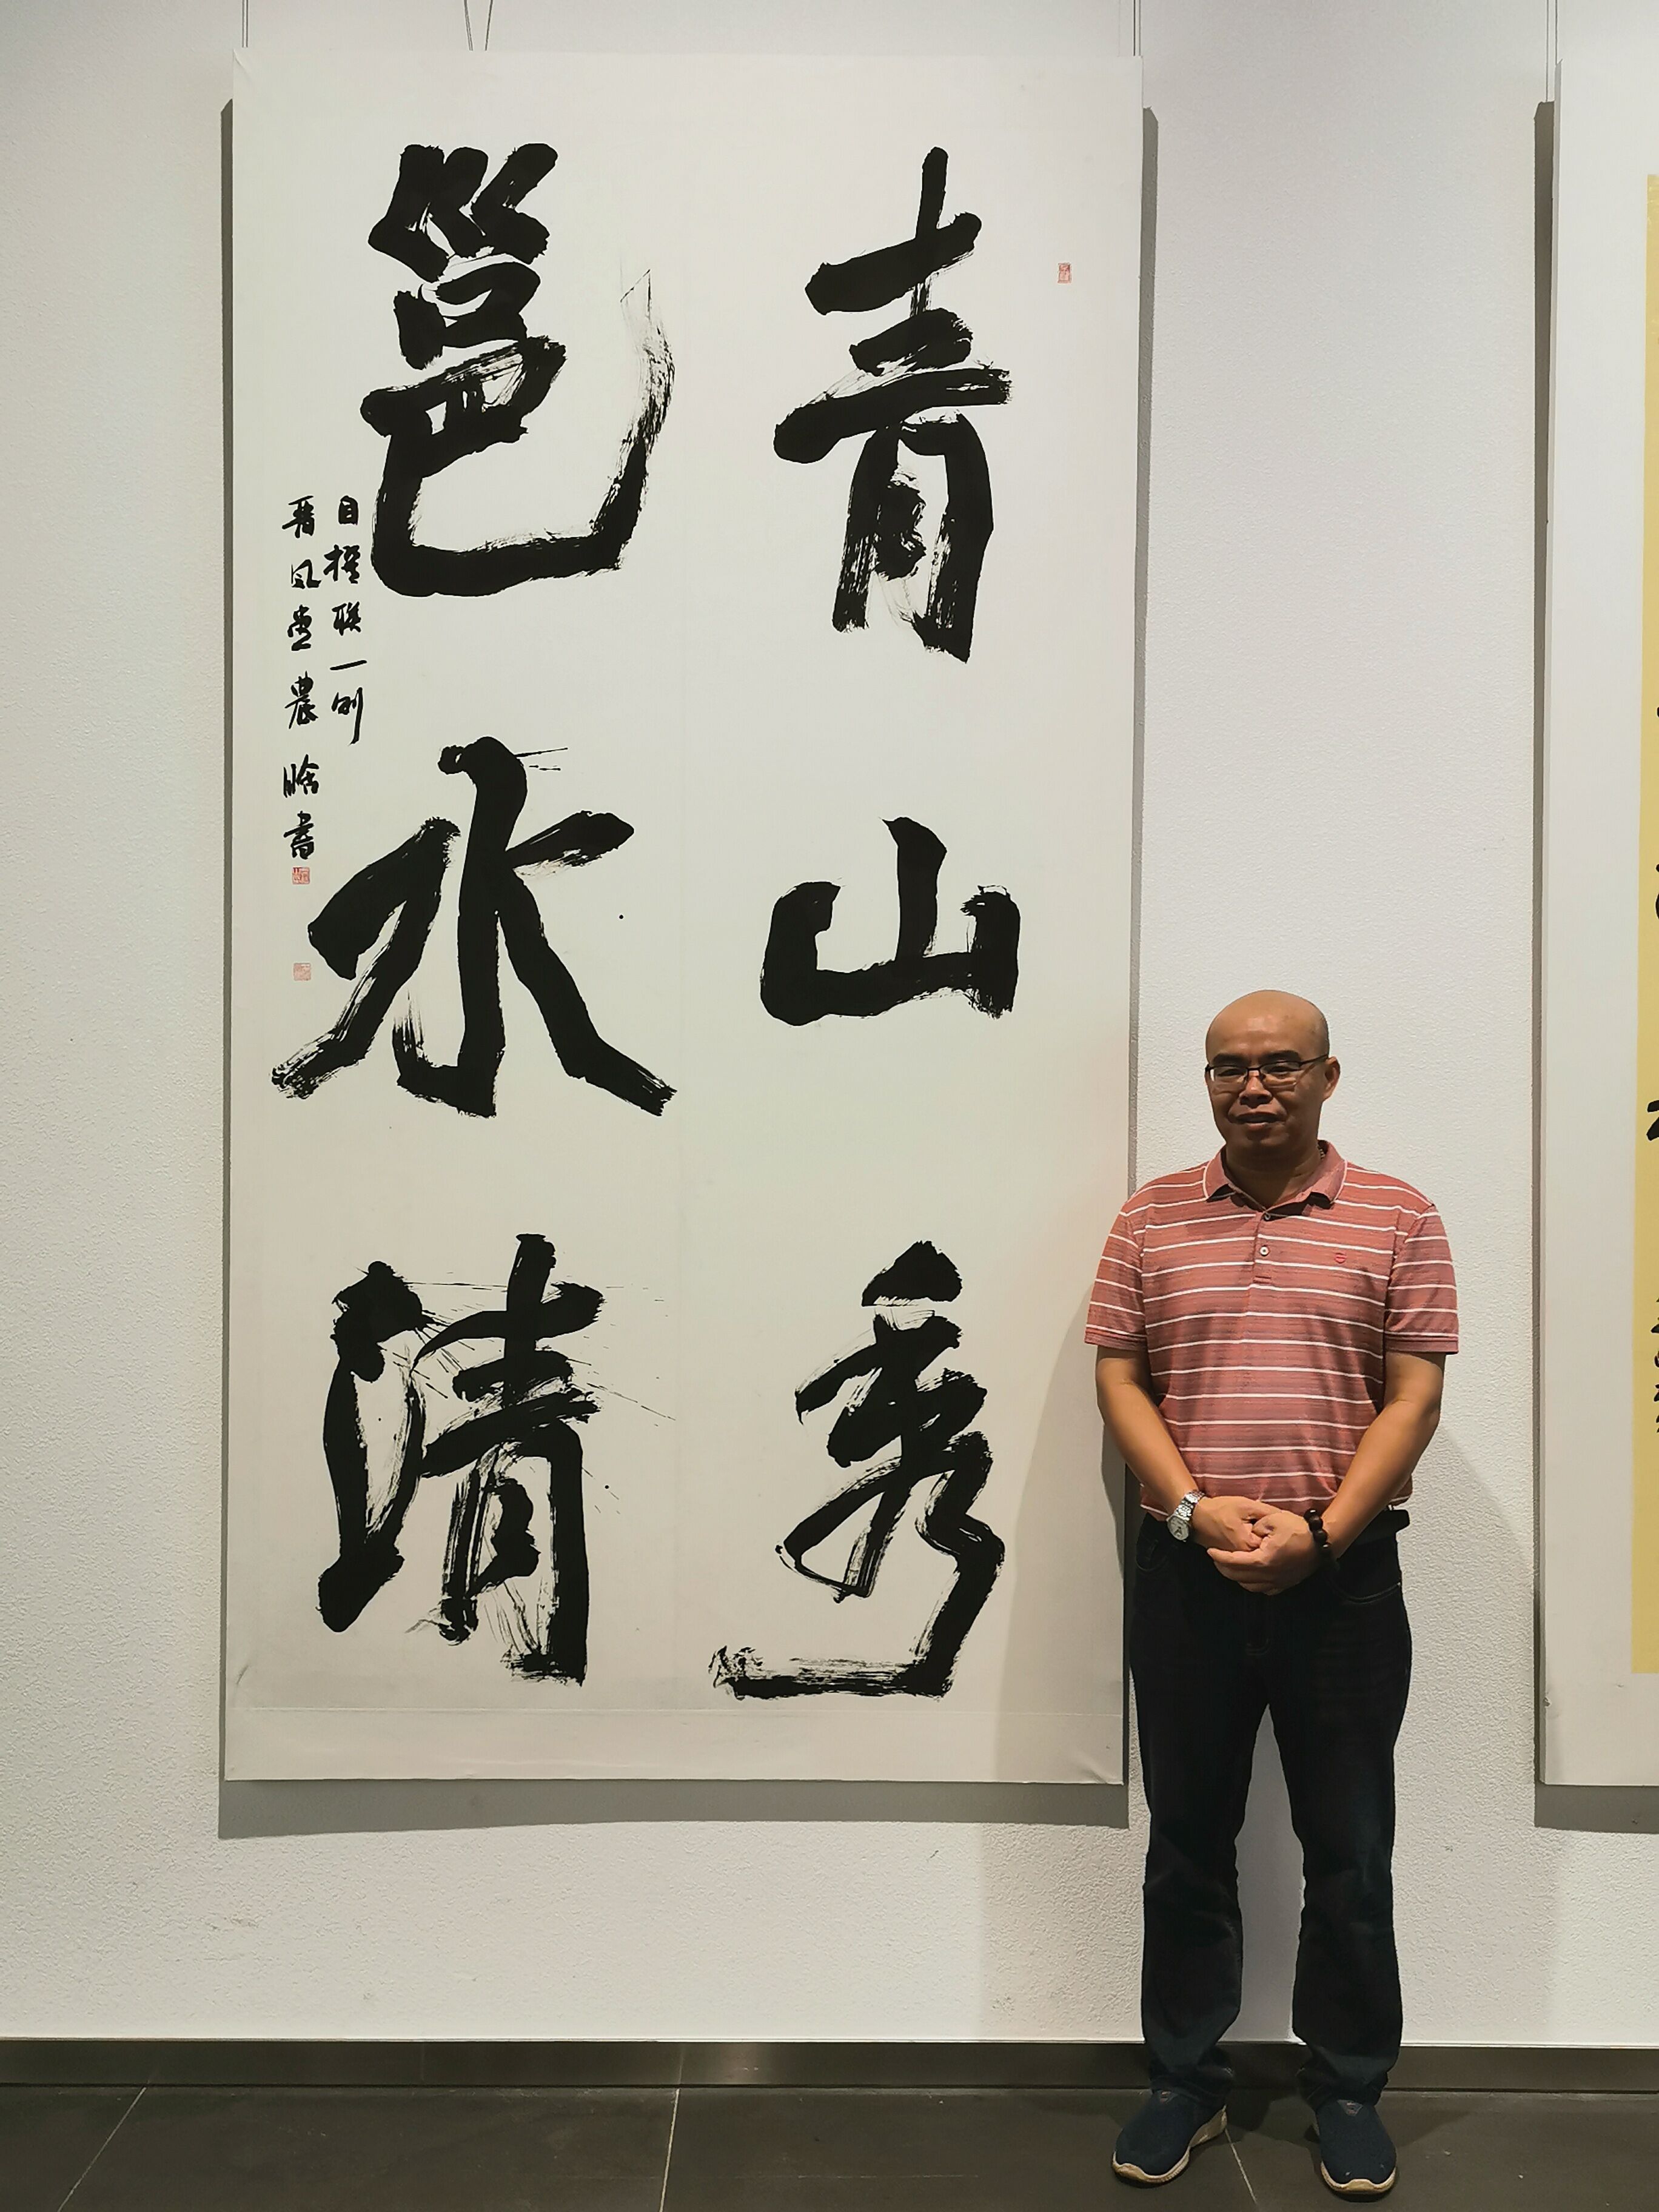 青山秀
邕水清
自撰联一则
晋风堂農晗書